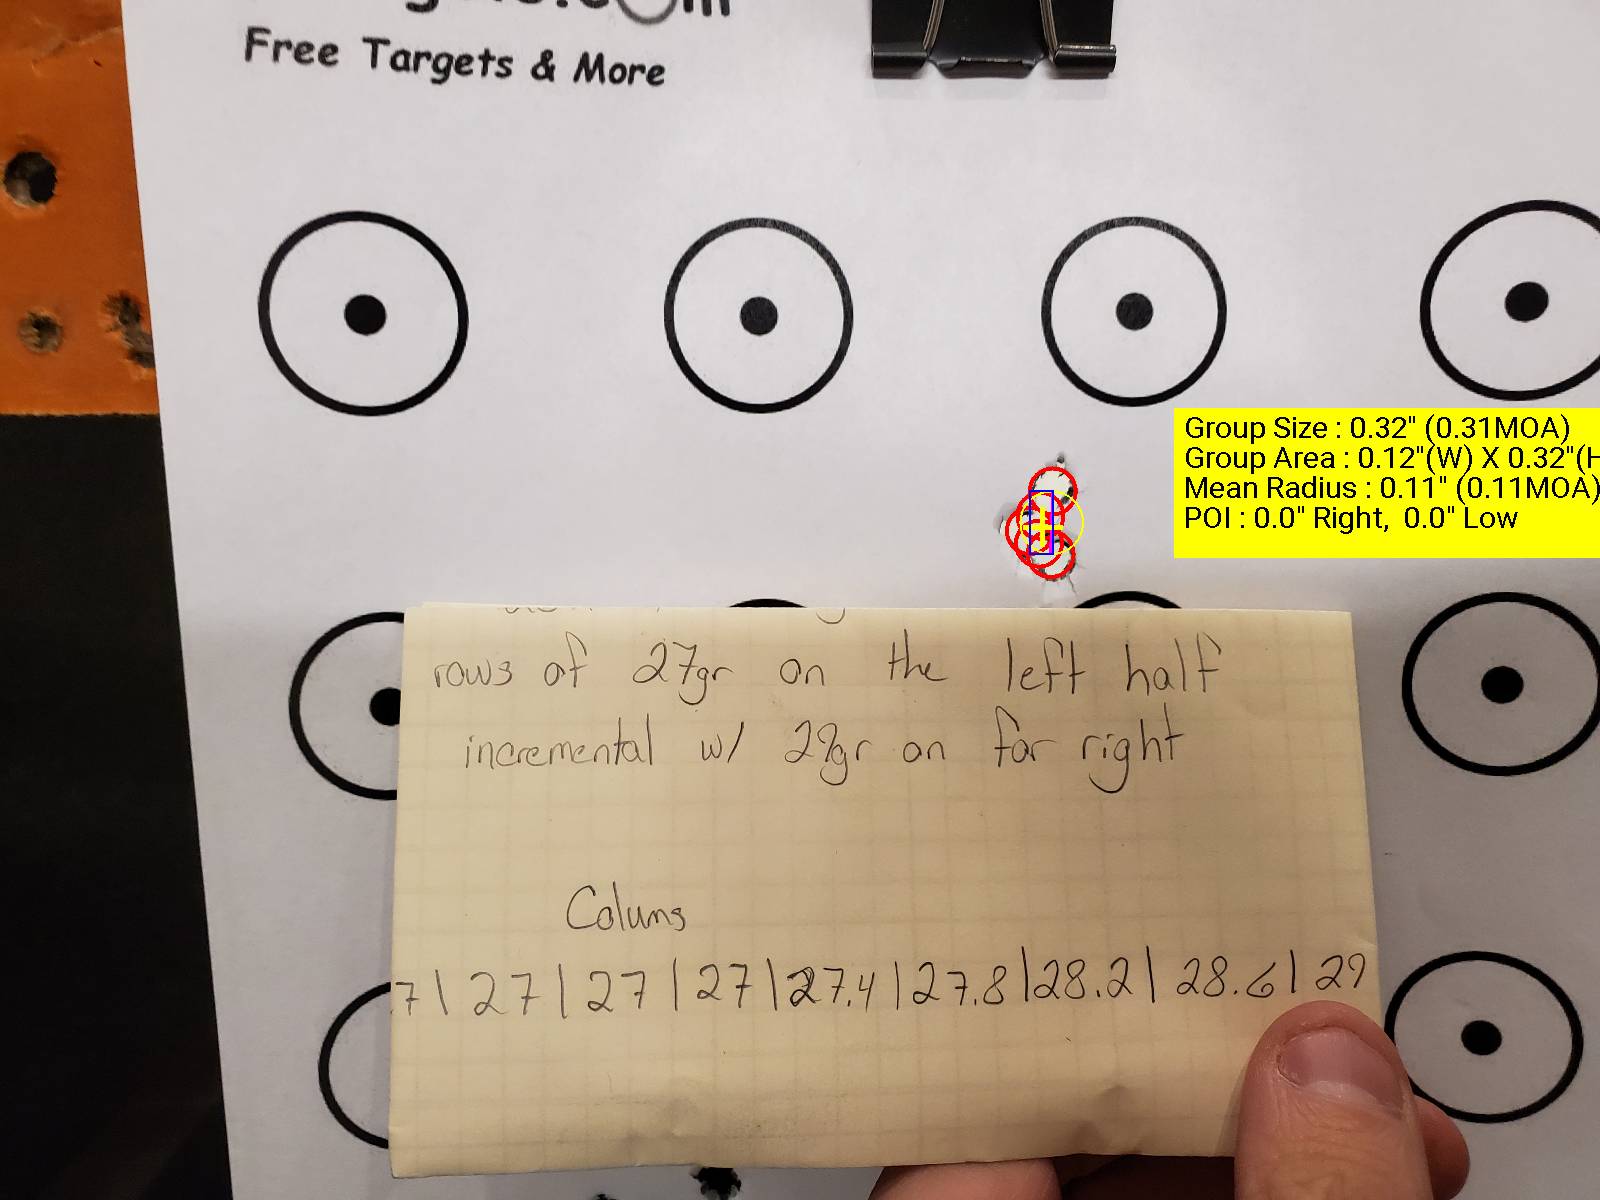 Free Targets & More
Group Size : 0.32" (0.31MOA)
Group Area : 0.12"(W) X 0.32"(H
Mean Radius : 0.11" (0.11MOA)
POI : 0.0" Right, 0.0" Low
rows of 27gr on the left half
incremental w/ 29gr on far right
Colums
7 | 27 | 27 | 27 | 27.4 | 27.8 | 28.2 | 28.6 | 29